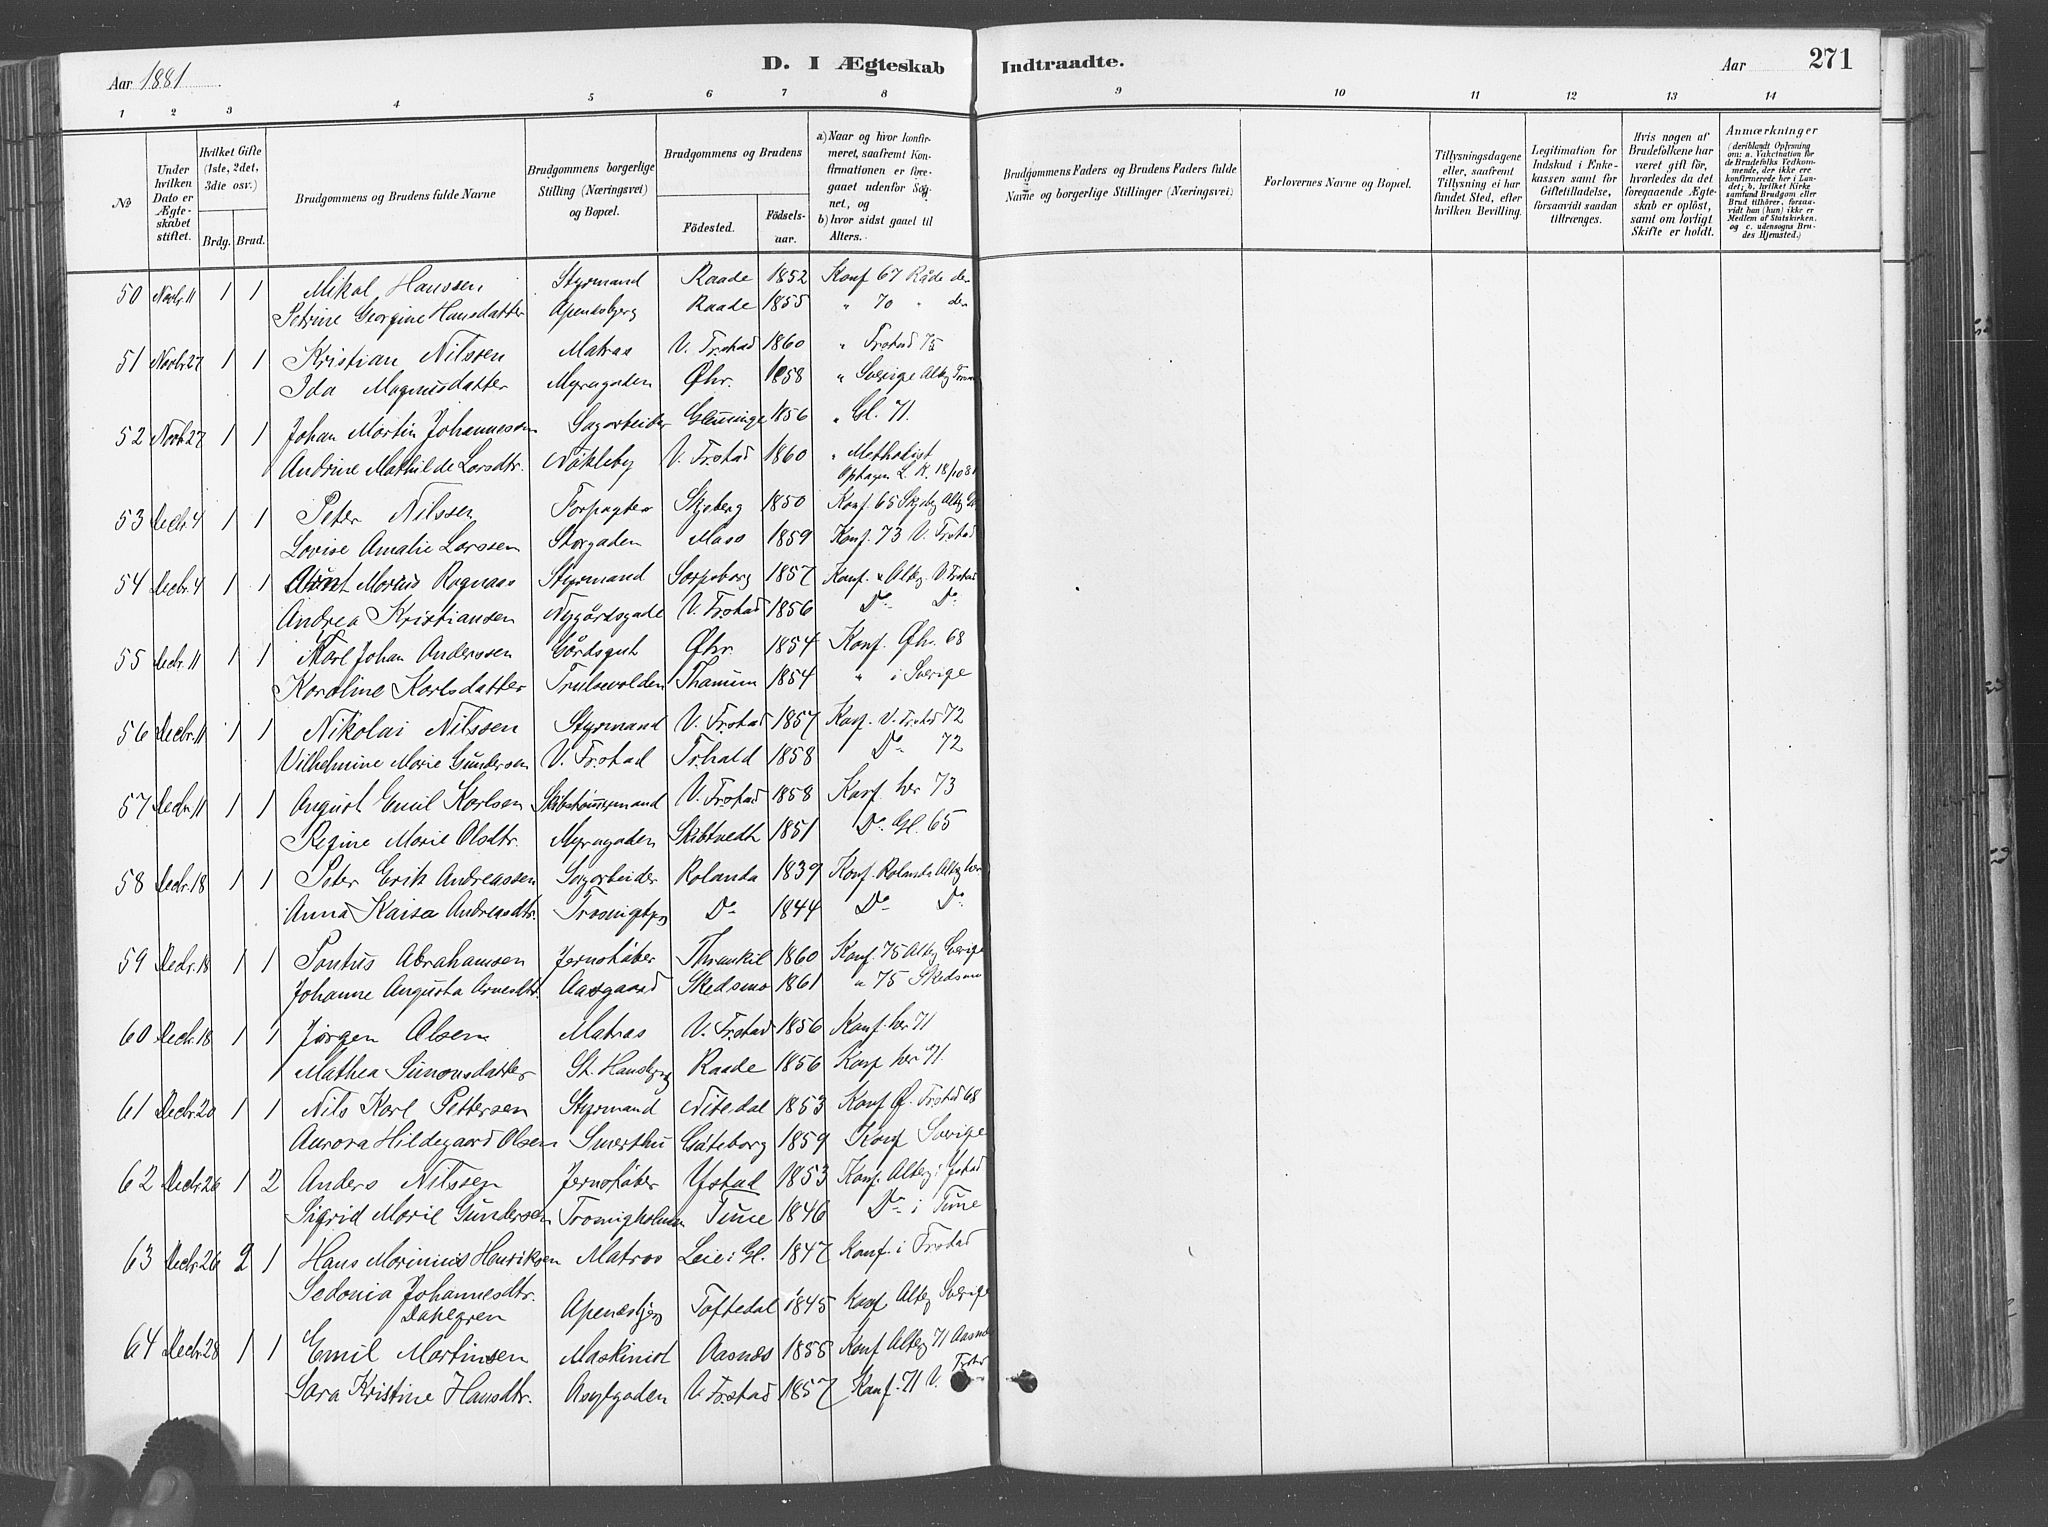 Aar 1881
D. I Ægteskab Indtraadte.
Aar 271
1 2 3 4 5 6 7 8 9 10 11 12 13 14
No
Under hvilken Dato er Ægteskabet stiftet.
Hvilket Gifte (1ste, 2det, 3die osv.)
Brdg. Brud.
Brudgommens og Brudens fulde Navne
Brudgommens borgerlige Stilling (Næringsvei) og Bopæl.
Brudgommens og Brudens
Födested. Födselsaar.
a) Naar og hvor konfirmeret, saafremt Konfirmationen er foregaaet udenfor Sognet, og
b) hvor sidst gaaet til Alters.
Brudgommens Faders og Brudens Faders fulde Navne og borgerlige Stillinger (Næringsvei)
Forlovernes Navne og Bopæl.
Tillysningsdagene eller, saafremt Tillysning ei har fundet Sted, efter hvilken Bevilling.
Legitimation for Indskud i Enkekassen samt for Giftetilladelse, forsaavidt saadan tiltrænges.
Hvis nogen af Brudefolkene har været gift för, hvorledes da det foregaaende Ægteskab er oplöst, samt om lovligt Skifte er holdt.
Anmærkninger
(deriblandt Oplysning om: a. Vakcination for de Brudefolks Vedkommende, der ikke ere konfirmerede her i Landet; b. hvilket Kirkesamfund Brudgom eller Brud tilhörer, forsaavidt han (hun) ikke er Medlem af Statskirken, og c. udensogns Brudes Hjemsted.)
50 Novbr. 11 1 1 Mikal Hanssen Styrmand Raade 1852 Konf 67 Råde
Petrine Georgine Hansdatter Apenæsbjerg Raade 1855 " 70 "
51 Novbr 27 1 1 Kristian Nilssen Matros V. Frstad 1860 " Frstad 75
Ida Magnusdatter Myragaden Øhr. 1858 " Sverige Altbg
52 Novb 27 1 1 Johan Martin Johannessen Sagarbeider Glemminge 1856 " Gl. 71.
Andrine Mathilde Larsdtr. Nökleby V. Frstad 1860 " Methodist
Optagen L. K. 18/10 81
53 Decbr. 4 1 1 Peter Nilssen Forpagter Skjeberg 1850 Konf. 65 Skjebg Altbg
Lovise Amalie Larssen Storgaden Moss 1859 Konf. 73 V. Frstad
54 Decbr. 4 1 1 Marius Ragnaas Styrmand Sarpsborg 1857 Konf. & Altbg. V. Frstad
Andrea Kristiansen Nygårdsgade V. Frstad 1856 Do Do
55 Decbr. 11 1 1 Karl Johan Anderssen Gårdsgut Øhr 1854 Konf. Øhr. 68
Karoline Karlsdatter Trulsevolden Thanum 1854 " i Sverige
56 Decbr. 11 1 1 Nikolai Nilssen Styrmand V. Frstad 1857 Konf. V. Frstad 72
Vilhelmine Marie Gundersen V. Frstad Frhald 1858 Do 72
57 Decbr 11 1 1 August Emil Karlsen Skibstömmermand V. Frstad 1858 Konf her 73
Regine Marie Olsdtr. Myragaden Skibtvedt 1851 Do Gl. 65
58 Decbr. 18 1 1 Peter Erik Andreassen Sagarbeider Rolands 1839 Konf. Rolands Altbg her
Anna Kaisa Andreasdtr. Do 1844 Do Do
59 Decbr. 18 1 1 Pontus Abrahamsen Jernstöber 1860 Konf. 75 Altbg Sverige
Johanne Augusta Arnesdtr. Aasgaard Skedsmo 1861 " 75 Skedsmo
60 Decbr. 18 1 1 Jørgen Olsen Matros V. Frstad 1856 Konf. her 71
Mathea Simonsdatter St. Hansbjerg Raade 1856 Konf her 71.
61 Decbr 20 1 1 Nils Karl Pettersen Styrmand Nitedal 1853 Konf Ø. Frstad 68
Aurora Hildegaard Olsen Smerthu Göteborg 1859 Konf Sverige
62 Decbr 26 1 2 Anders Nilssen Jernstöber Ystad 1853 Konf. Altbg i Ystad
Sigrid Marie Gundersen Trosvigholmen Tune 1846 Do i Tune
63 Decbr 26 2 1 Hans Marinius Henriksen Matros Leie i Gl. 1847 Konf. i Frstad
Sedonia Johannesdtr. Dahlgren Apenæsbjerg Toftedal 1845 Konf Altbg Sverige
64 Decbr 28 1 1 Emil Martinsen Maskinist Aasnæs 1855 Konf Altbg 71 Aasnæs
Sara Kristine Hansdtr. Asylgaden V. Frstad 1857 Konf. 71 V. Frstad